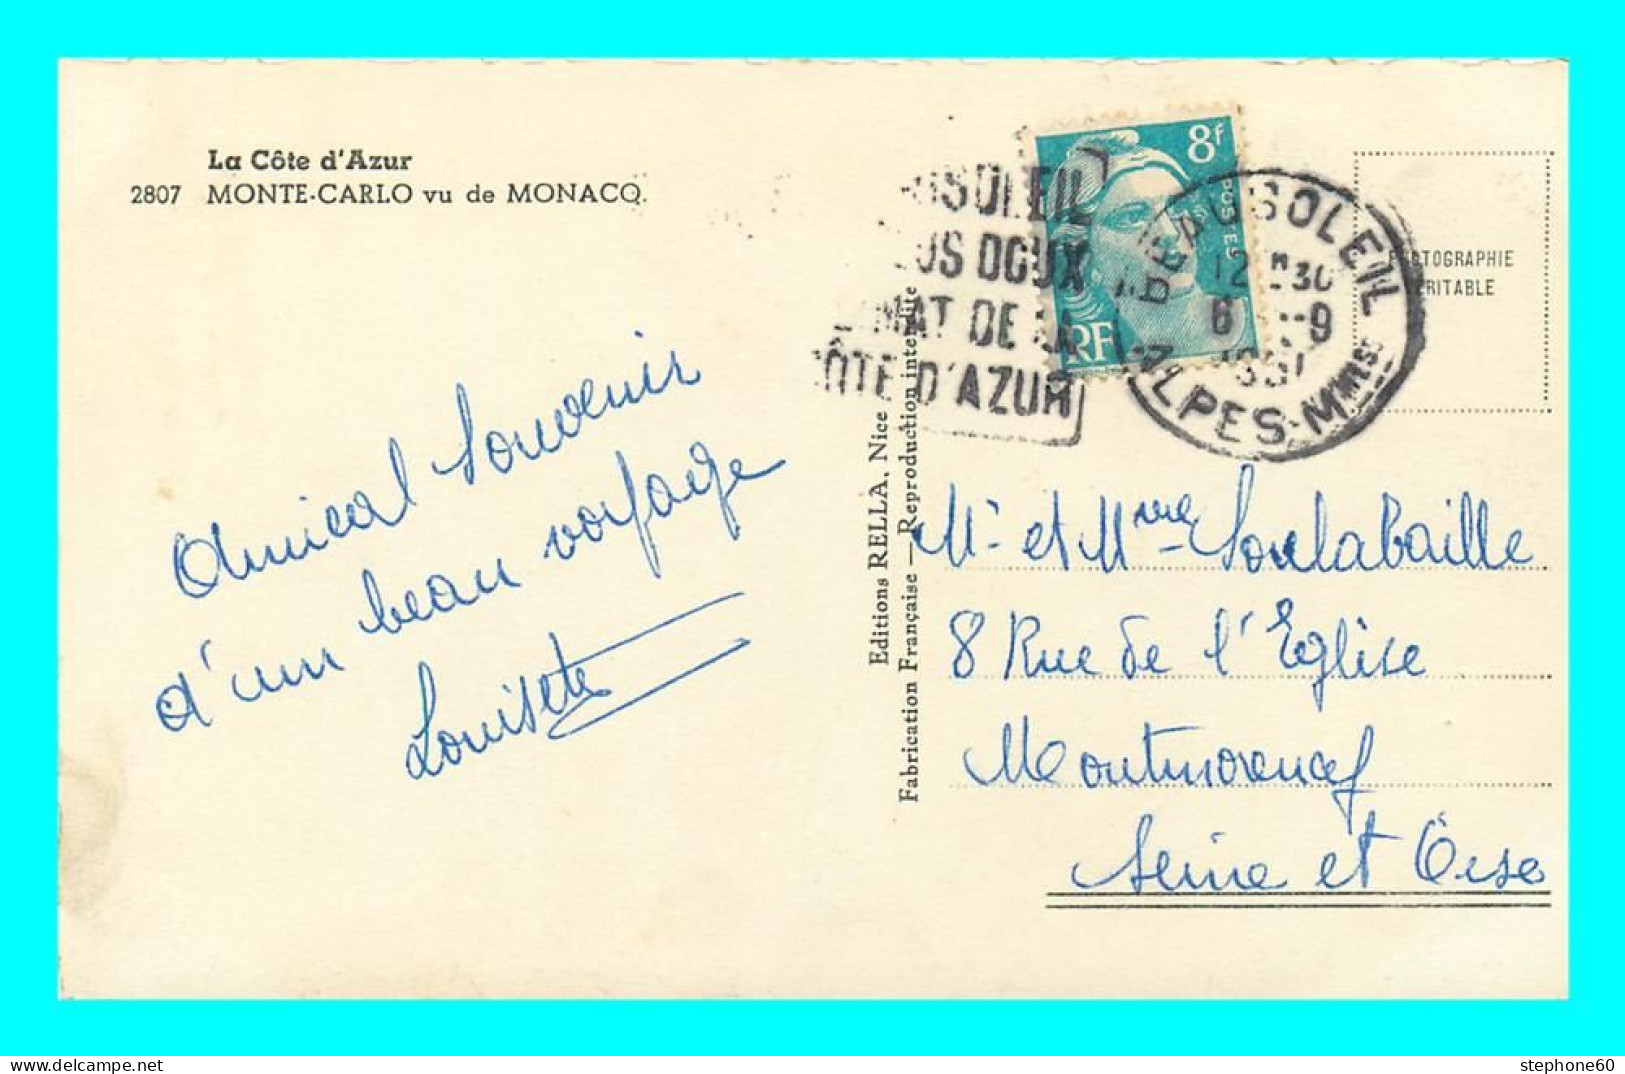 La Côte d'Azur
2807 MONTE-CARLO vu de MONACO.
Amical Souvenir
d'un beau voyage
Louisette
Editions RELLA, Nice
Fabrication Française — Reproduction interdite
8f
POSTES
RF
SOLEIL
DOUX
DE LA
CÔTE D'AZUR
BEAUSOLEIL
ALPES-MMES
PHOTOGRAPHIE
VÉRITABLE
Mr et Mme Soulabaille
8 Rue de l'Eglise
Montmorency
Seine et Oise
stephone60